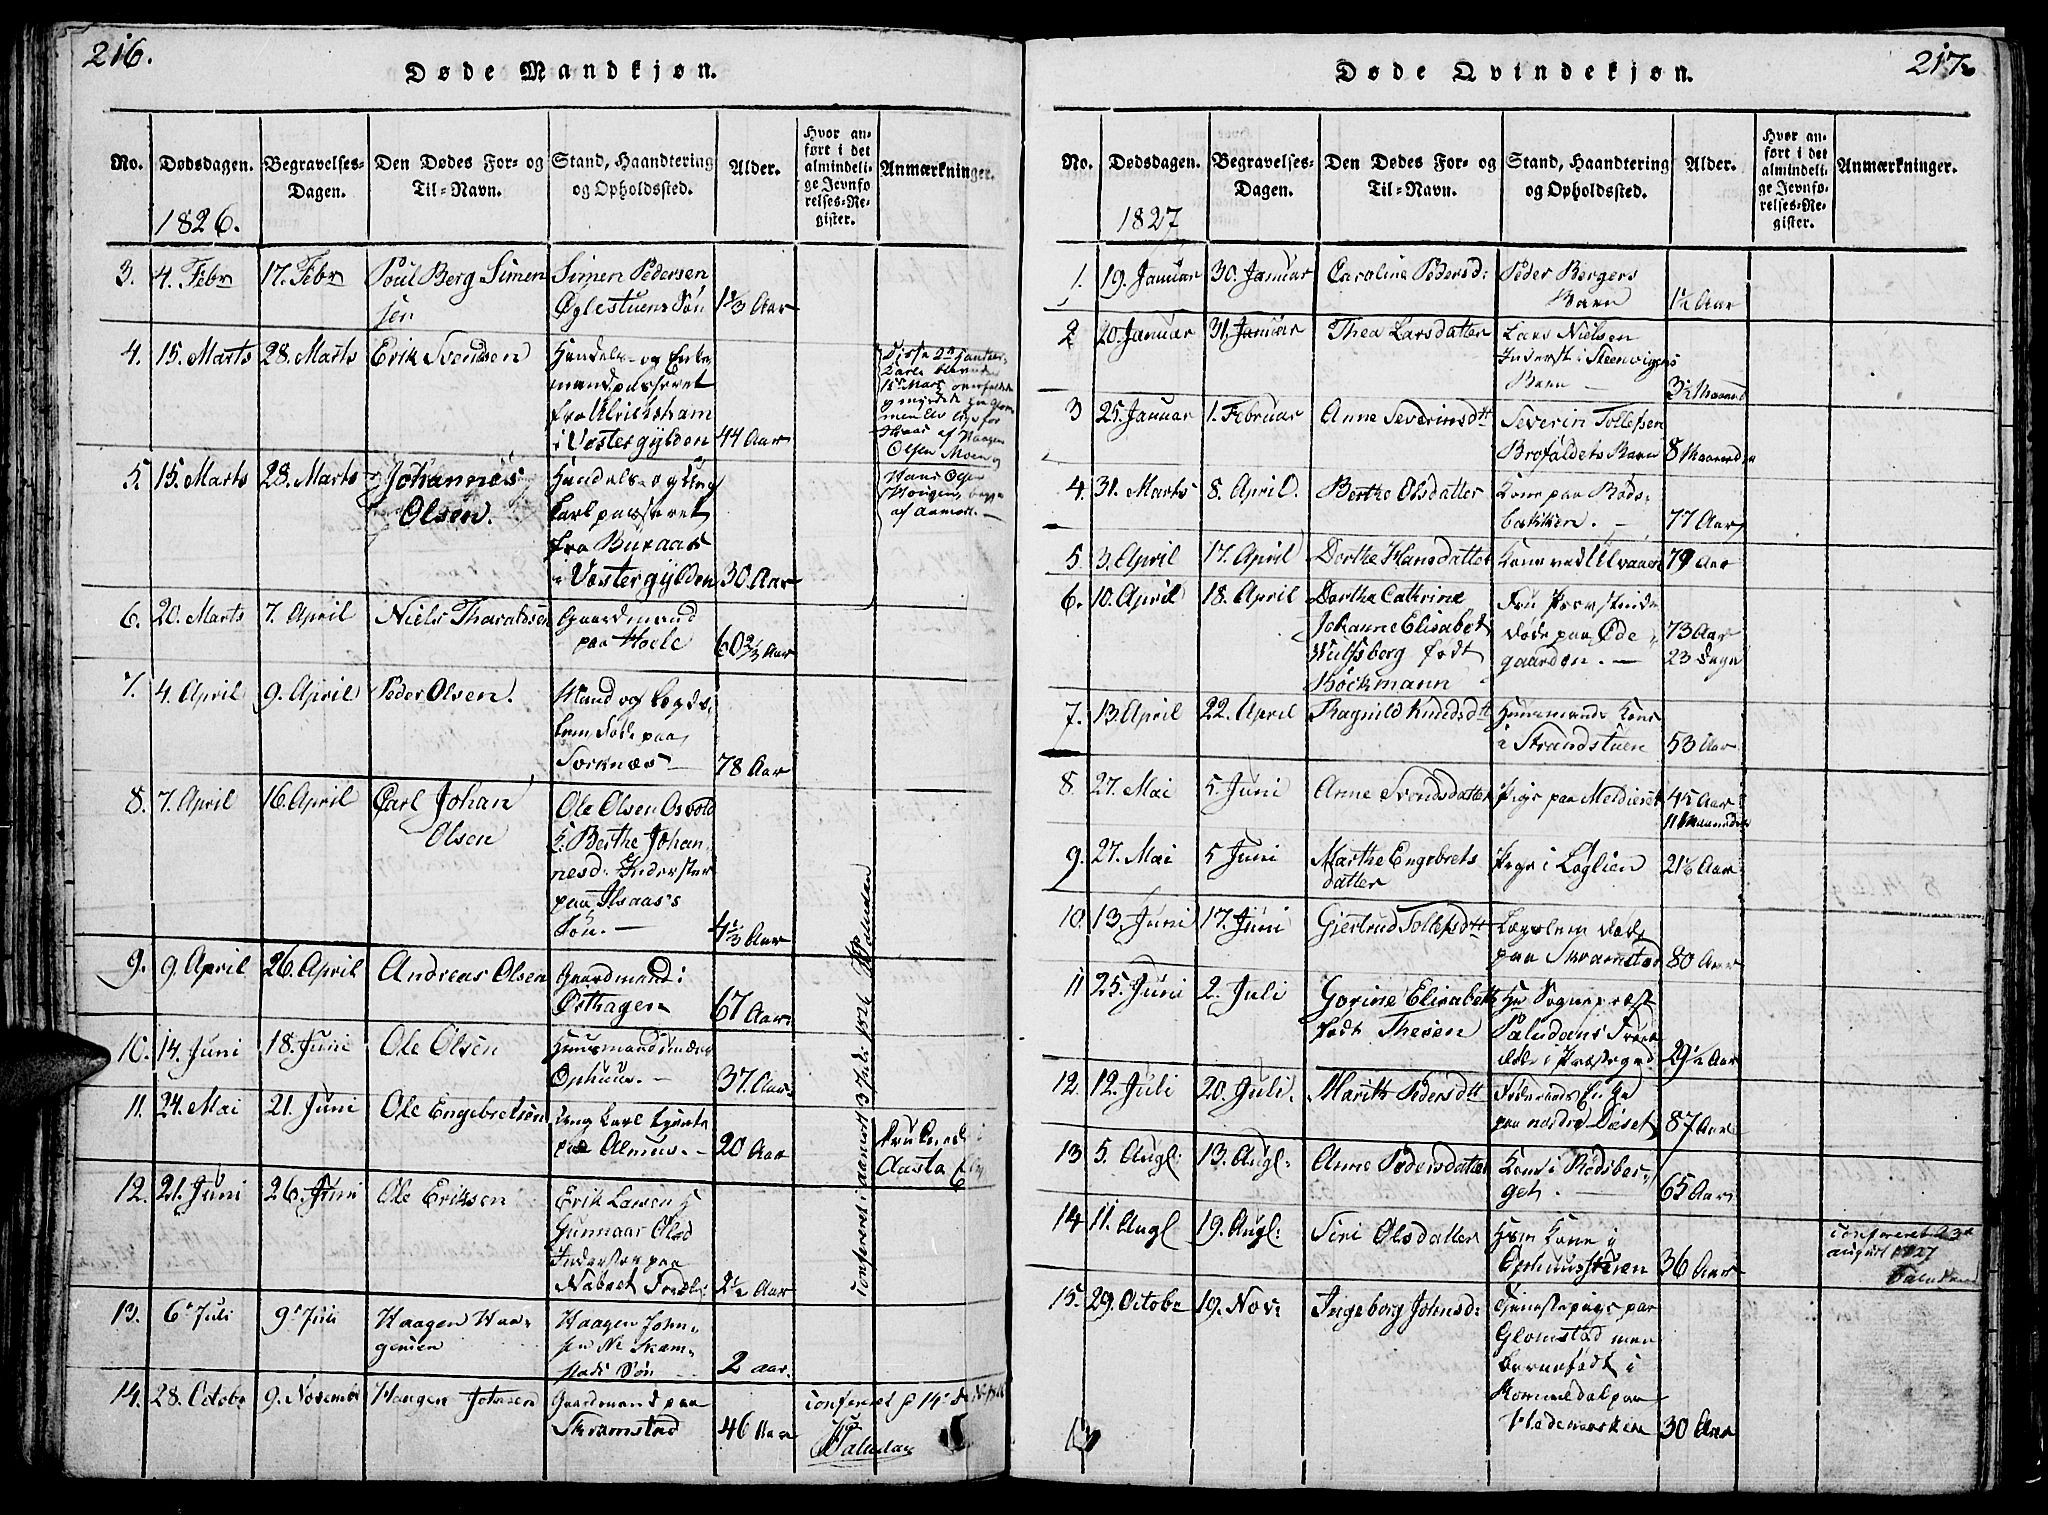 216.
Døde Mandkjøn.
No.
Dødsdagen.
Begravelses-
Dagen.
Den Dødes For- og
Til-Navn.
Stand, Haandtering
og Opholdssted.
Alder.
Hvor an-
ført i det
almindeli-
ge Jevnfø-
relses-Re-
gister.
Anmærkninger.
1826.
3. 4. Febr 17. Febr Poul Berg Simen Simen Pedersen
sen Øglestuens Søn 1 1/3 Aar
4. 15. Marts 28. Marts Erik Svendsen Handels- og Enke
mand passeret
fra Ulricksham
i Vestergylden 44 Aar
5. 15. Marts 28. Marts Johannes Handels- og Ung
Olsen. karl passeret
fra Buraas
i Vestergylden 30 Aar
Olsen Moen og
Hans Olsen
af Aamodt.
6. 20. Marts 7. April Niels Tharaldsen Gaardmand
paa Hoele 60 2/3 Aar
7. 4 April 9. April Peder Olsen. Mand og Lægds-
lem døde paa
Sorknæs 78 Aar
8. 7. April 16. April Carl Johan Ole Olsen Osvold
Olsen Berthe Johan-
nesd. Inderster
paa Ilsaas's
Søn. 4 1/3 Aar
9. 9. April 26. April Andreas Olsen Gaardmand i
Østhagen 67 Aar
10. 14. Juni 18. Juni Ole Olsen Huusmand
Ophuus. 37. Aar
11. 24. Mai 21. Juni Ole Engebretsen Ung Karl
paa Almus. 20 Aar druknede i
Aasta Elv
12. 21. Juni 26. Juni Ole Eriksen Erik Larsen
Gunnaar Olsd
Inderster paa
2 1/2 Aar
13. 6 Juli 9 Juli Haagen Haa- Haagen John-
gensen sen N. Skam-
stads Søn 2 aar.
14. 28. Octobr 9. Novembr Haagen Johnsen Gaardmand paa
Skramstad 46 Aar
conferert i aamodt 3 Juli 1826 Paludan
conferert 14
Paludan
217.
Døde Qvindekjøn.
No.
Dødsdagen.
Begravelses-
Dagen.
Den Dødes For- og
Til-Navn.
Stand, Haandtering
og Opholdssted.
Alder.
Hvor an-
ført i det
almindeli-
ge Jevnfø-
relses-Re-
gister.
Anmærkninger.
1827
1. 19. Januar 30. Januar Caroline Pedersd: Peder Bergers
Barn 1 1/2 Aar
2 20. Januar 31. Januar Thea Larsdatter Lars Nielsen
Inderst i Steenvigens
Barn 3 1/2 Maaned
3 25. Januar 1. Februar Anne Severinsdtt Severin Tollefsen
Brofaldets Barn 8 Maaneder
4. 31. Marts 8. April. Berthe Olsdatter Kone paa Røds-
bakken. 77 Aar
5. 3. April 17. April Dorthe Hansdatter Kone ved Ulvaaen 79 Aar
6. 10. April 18. April Dorthe Cathrine Fru Provstinde
Johanne Elisabet døde paa Øde- 73 Aar
Wulfsberg født gaarden. 23 Dage
Böckmann
7. 13. April 22. April Ragnild Knudsdtt Huusmands Kone
i Strandstuen 53 Aar
8. 27. Mai 5 Juni Anne Svendsdatter Pige paa Meldieset 45 Aar
11 Maaneder
9. 27. Mai 5 Juni Marthe Engebrets Pige i Løglien 21 1/2 Aar
datter
10. 13. Juni 17. Juni Gjertrud Tollefsdtt Lægdslem døde
paa Skramstad 80 Aar
11 25. Juni 2. Juli Gorine Elisabeth Hr Sognepræst
født Thesen Paludans Frue
døde i Præstegrd 29 1/2 Aar
12. 12. Juli 20. Juli. Marith Pedersdtt Føderaads Enke
paa nordre Deset 87 Aar
13 5. Augl: 13. Augl: Anne Pedersdatter Kone i Rødsber-
get. 65 Aar
14 11. Augl 19. Augl: Siri Olsdatter Hsm Kone i
Ophuusstuen 36 Aar
conferert 23
august 1827
Paludan
15. 29. Octobr 19. Nov: Ingeborg Johnsd: Tjenestepige paa
Glomstad men
barnefødt i
Rommedal paa
Hedemarken 30 Aar